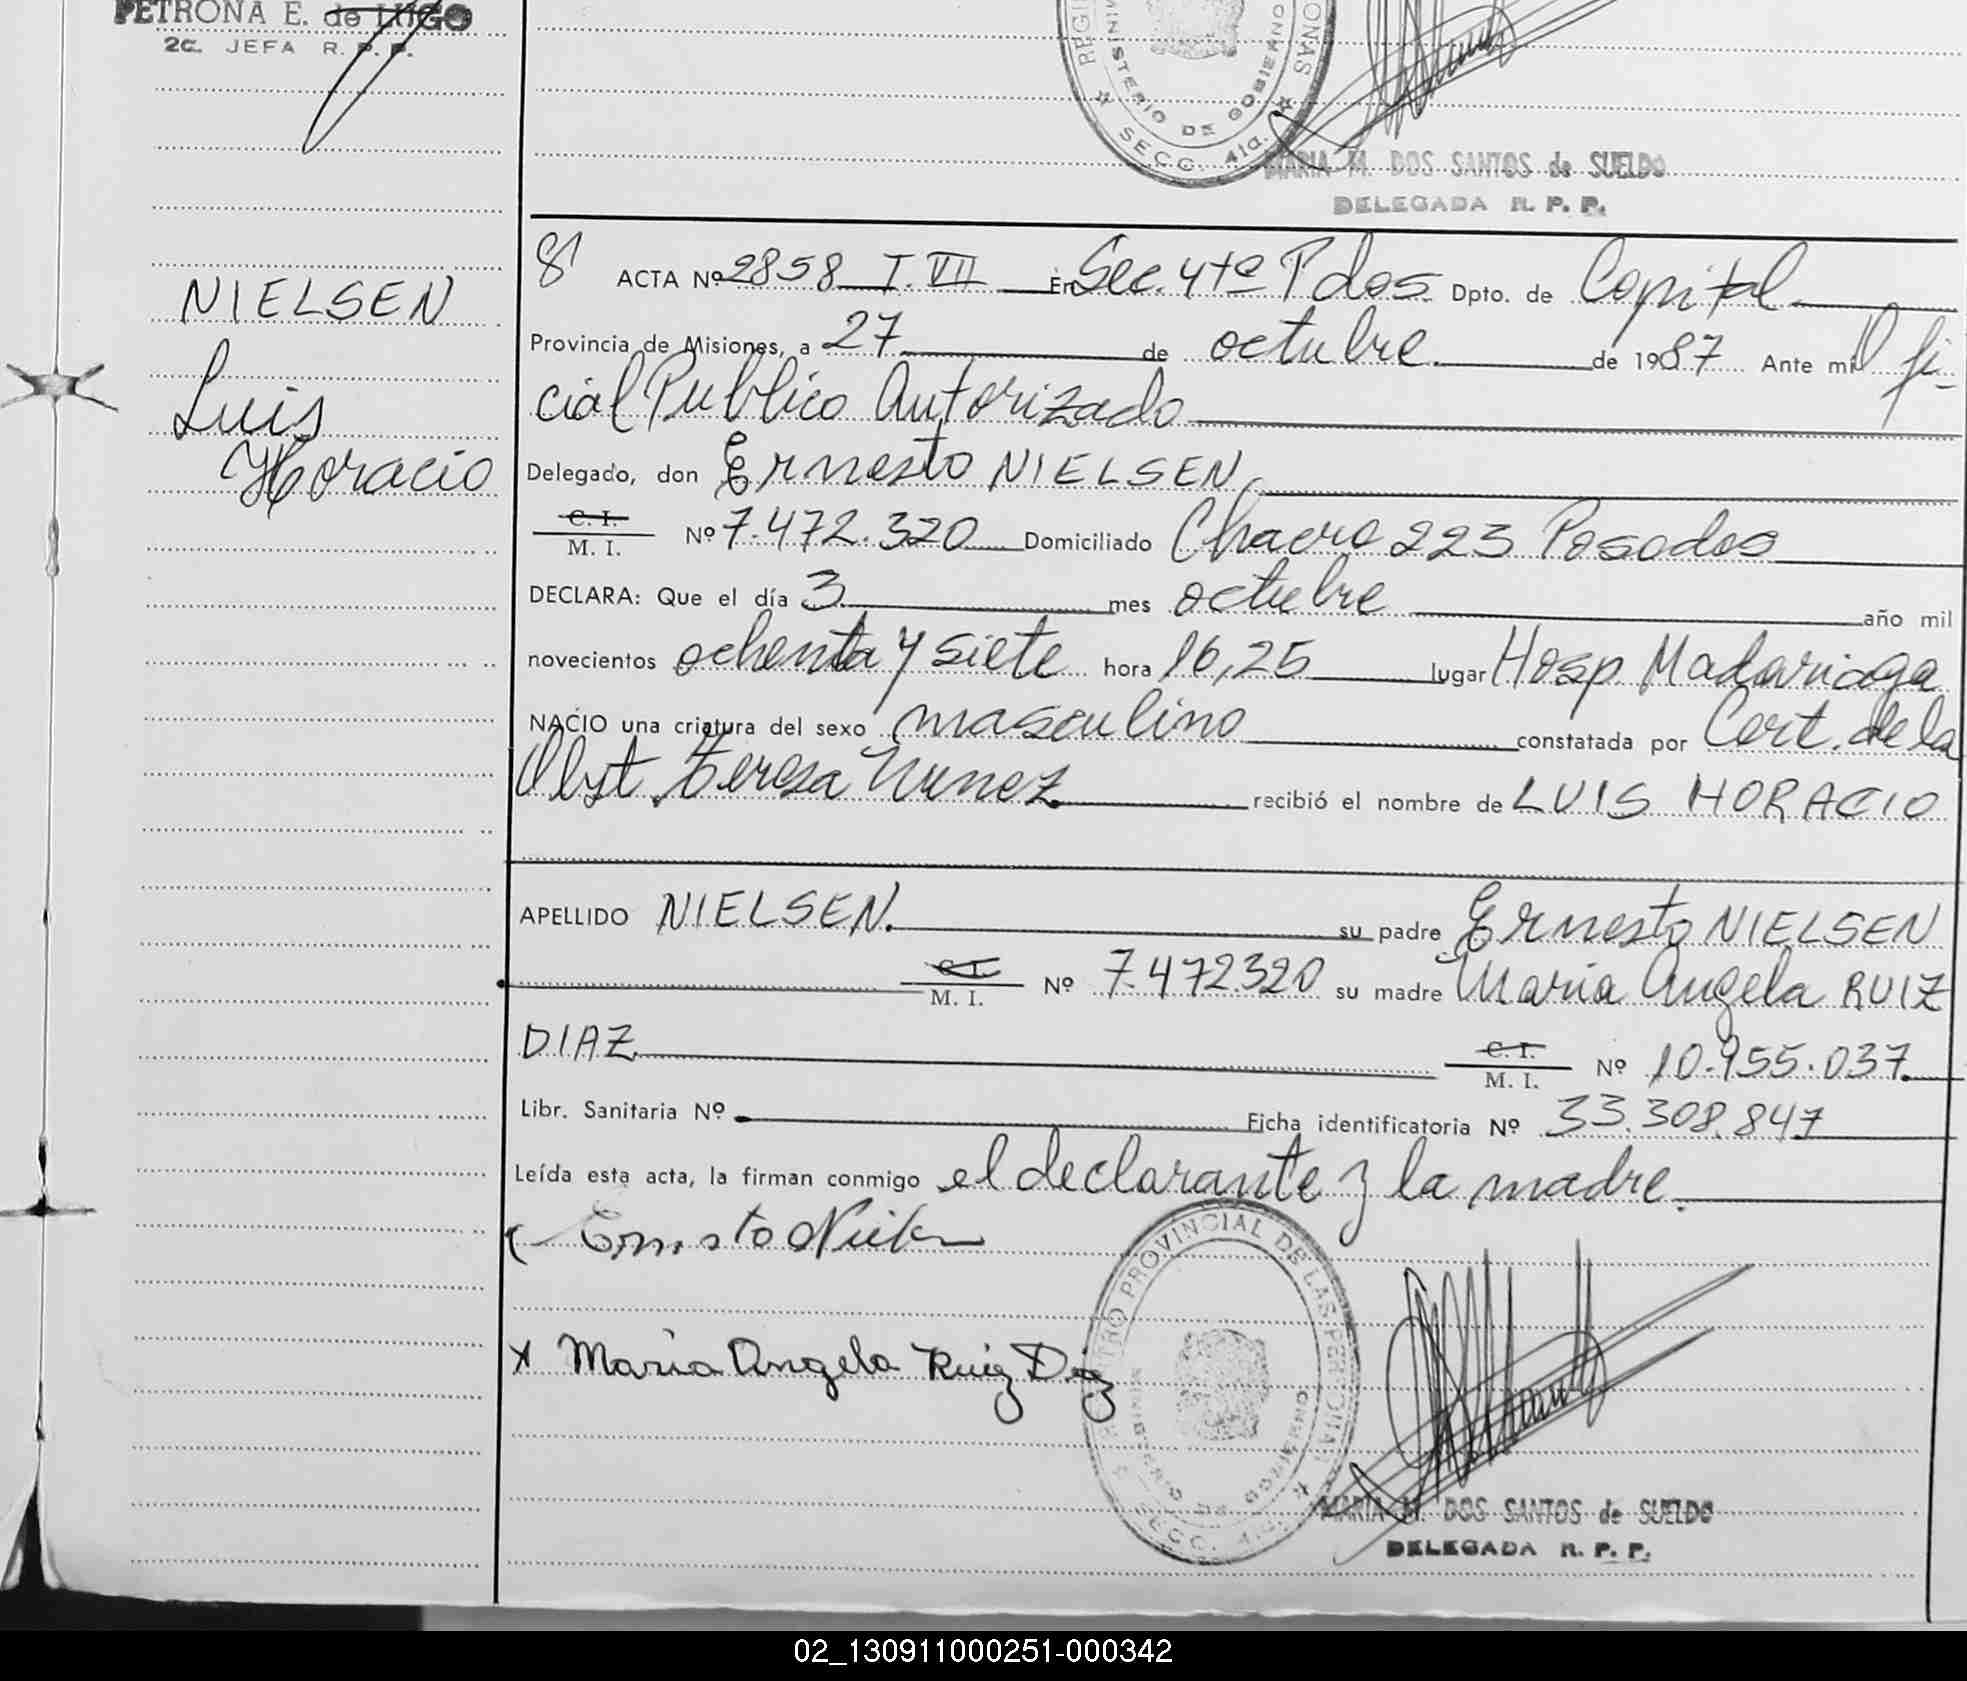 PETRONA E. de LUGO
2a. JEFA R. P. P.
MINISTERIO DE GOBIERNO
SECC. 4ta.
MARIA M. DOS SANTOS de SUELDO
DELEGADA R. P. P.
NIELSEN
Luis
Horacio
ACTA Nº 2858 T. VII En Sec. 4ta Pdas Dpto. de Capital
Provincia de Misiones, a 27 de octubre de 1987 Ante mi Ofi-
cial Publico Autorizado
Delegado, don Ernesto NIELSEN,
C. I.
M. I. Nº 7.472.320 Domiciliado Chacra 223 Posadas
DECLARA: Que el día 3 mes octubre año mil
novecientos ochenta y siete hora 16,25 lugar Hosp. Madariaga
NACIO una criatura del sexo masculino constatada por Cert. de la
Obst. Teresa Nunez recibió el nombre de LUIS HORACIO
APELLIDO NIELSEN. su padre Ernesto NIELSEN
C. I.
M. I. Nº 7.472320 su madre Maria Angela RUIZ
DIAZ C. I.
M. I. Nº 10.955.037
Libr. Sanitaria Nº Ficha identificatoria Nº 33.308.847
Leída esta acta, la firman conmigo el declarante y la madre.
Ernesto Nielsen
x Maria Angela Ruiz Diaz
REGISTRO PROVINCIAL DE LAS PERSONAS
MINISTERIO DE GOBIERNO
SECC. 4ta.
MARIA M. DOS SANTOS de SUELDO
DELEGADA R. P. P.
02_130911000251-000342